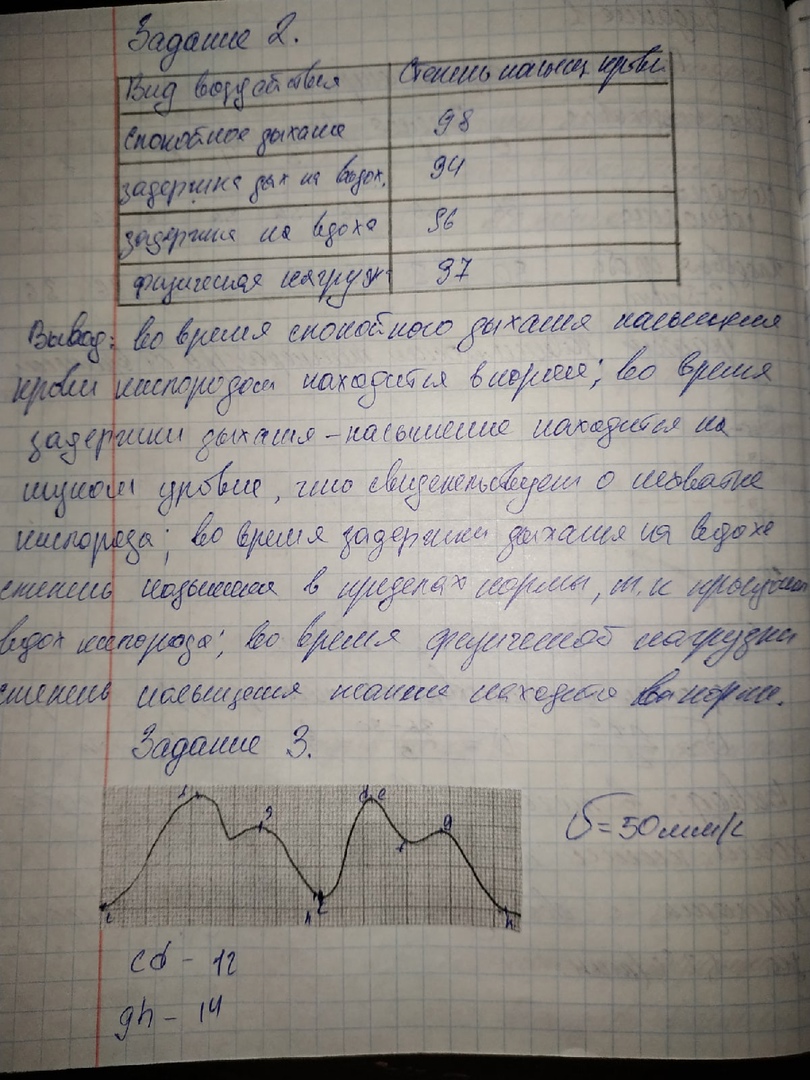 Задание 2.
Вид воздействия Степень насыщ крови
спокойное дыхание 98
задержка дых на выдох. 94
задержка на вдохе 96
физическая нагрузк 97
Вывод: во время спокойного дыхания насыщения
крови кислородом находится в норме; во время
задержки дыхания – насыщение находится на
уровне, что свидетельствует о нехватке
кислорода; во время задержки дыхания на вдохе
степень насыщения в пределах нормы, т.к
вдох кислорода; во время физической нагрузки
степень насыщения находится в норме.
Задание 3.
d e
g
c
f
h
c
h
V=50мм/с
cd – 12
gh – 14